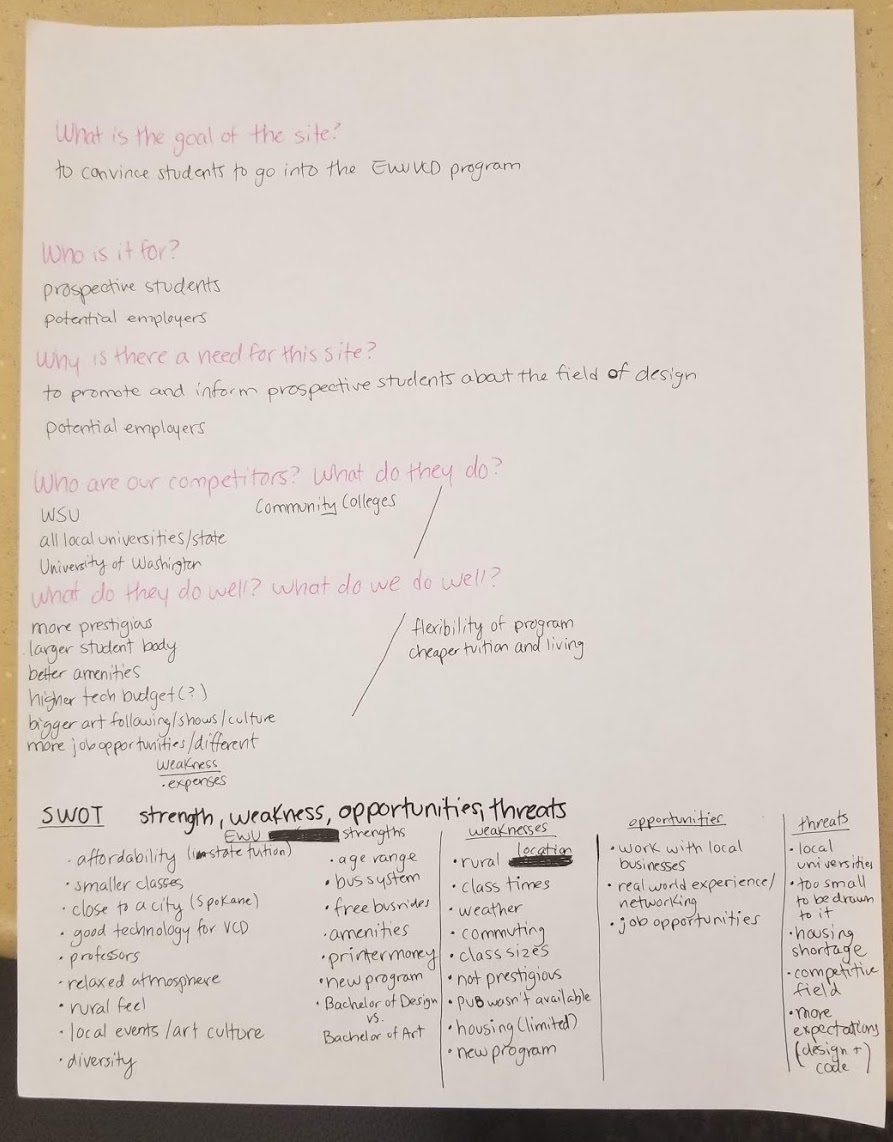 What is the goal of the site?
to convince students to go into the EWU VCD program
Who is it for?
prospective students
potential employers
Why is there a need for this site?
to promote and inform prospective students about the field of design
potential employers
Who are our competitors? What do they do?
WSU
Community Colleges
all local universities/state
University of Washington
What do they do well? What do we do well?
more prestigious
larger student body
better amenities
higher tech budget(?)
bigger art following/shows/culture
more job opportunities/different
weakness
· expenses
flexibility of program
cheaper tuition and living
SWOT strength, weakness, opportunities, threats
EWU strengths
· affordability (in state tution)
· smaller classes
· close to a city (Spokane)
· good technology for VCD
· professors
· relaxed atmosphere
· rural feel
· local events /art culture
· diversity
· age range
· bus system
· free bus rides
· amenities
· printer money
· new program
· Bachelor of Design
vs.
Bachelor of Art
weaknesses
· rural location
· class times
· weather
· commuting
· class sizes
· not prestigious
· PUB wasn't available
· housing (limited)
· new program
opportunities
· work with local
businesses
· real world experience/
networking
· job opportunities
threats
· local
universities
· too small
to be drawn
to it
· housing
shortage
· competitive
field
· more
expectations
(design +)
code